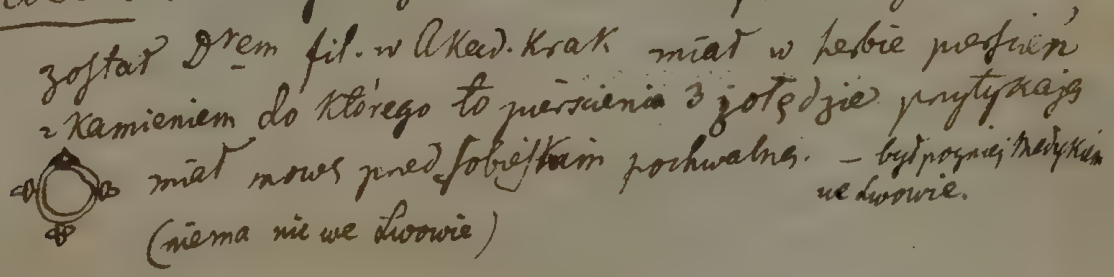 został Drem fil. w Akad. Krak miał w herbie pierścień
z kamieniem do którego to pierscienia 3 żołędzie przytykają
miał mowę przed Sobieskim pochwalną. – był pozniej medykiem
we Lwowie.
(niema nic we Lwowie)